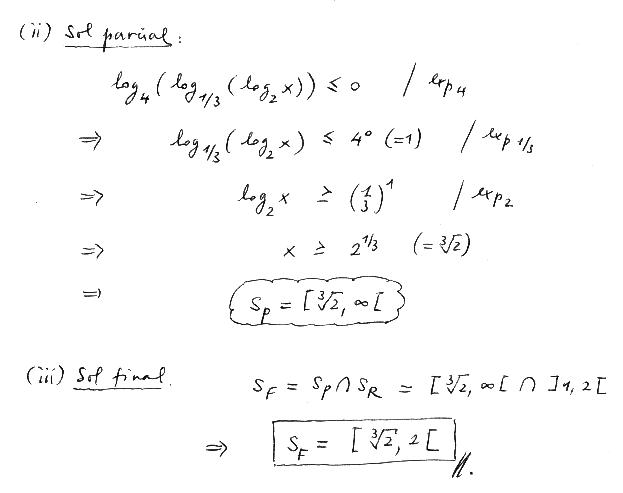 (ii) Sol parcial:
log₄(log₁/₃(log₂x)) ≤ 0 / exp₄
⇒ log₁/₃(log₂x) ≤ 4⁰ (=1) / exp₁/₃
⇒ log₂x ≥ (1/3)¹ / exp₂
⇒ x ≥ 2^1/3 (= ∛2)
⇒ Sₚ = [∛2, ∞[
(iii) Sol final. S_F = Sₚ ∩ S_R = [∛2, ∞[ ∩ ]1, 2[
⇒ S_F = [∛2, 2[ //.